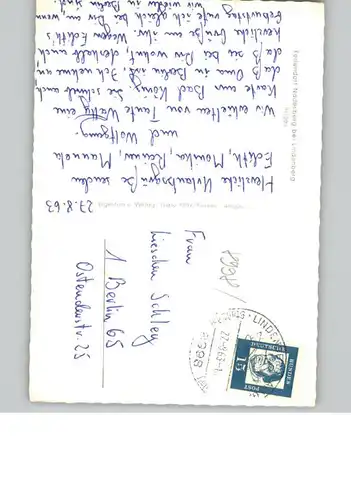 Feriendorf Nadenberg bei Lindenberg
Allgäu
27.8.63
Herzliche Urlaubsgrüße senden
Edith, Monika, Reiner, Manuela
und Wolfgang.
Wir erhielten von Tante Wally eine
Karte aus Bad König. Sie schreibt auch
daß Oma in Berlin ist. Ich nehme an
daß sie bei Dir wohnt, deshalb auch
herzliche Grüße an ihr. Wegen Edith's
Geburtstag rufe ich gleich bei Dir an, wenn
wir wieder in Berlin sind.
Frau
Lieschen Schley
1 Berlin 65
Ostenderstr. 25
8998
LINDENBERG
27.8.63
8998
DEUTSCHE
BUNDESPOST
15